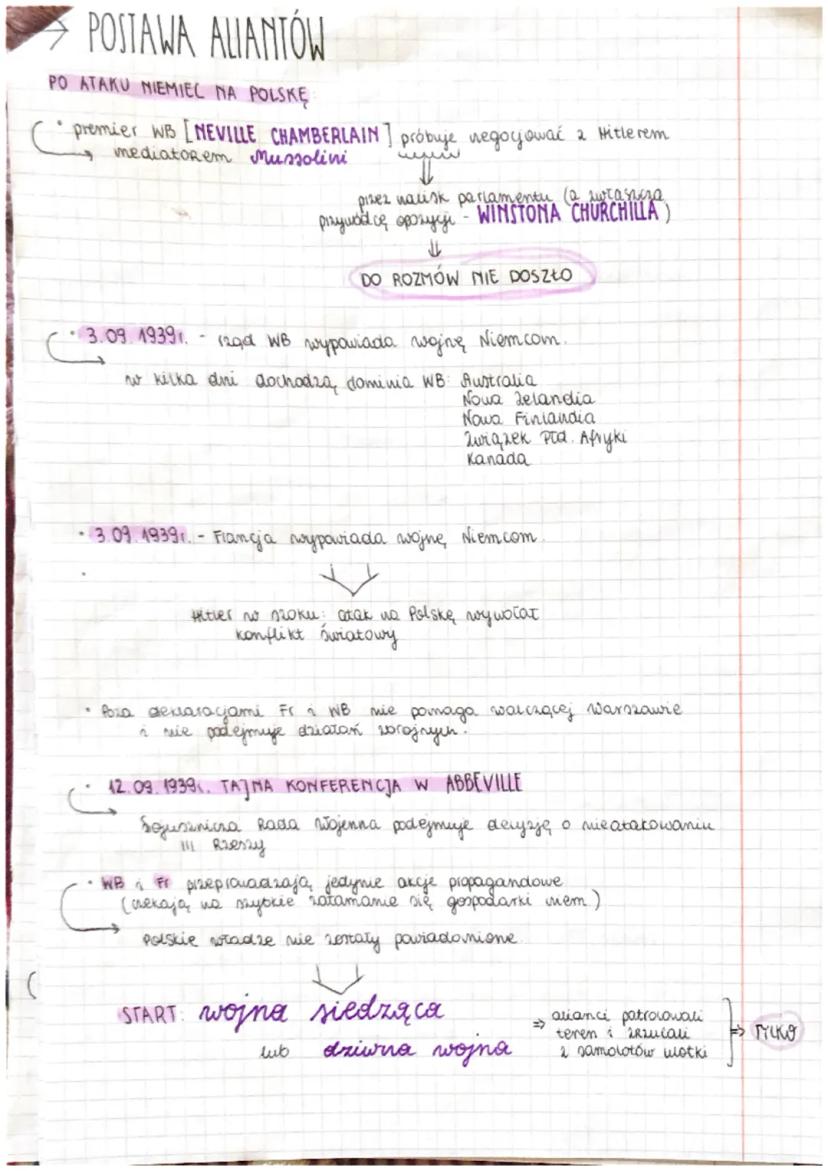 → POSTAWA ALIANTÓW
PO ATAKU NIEMIEC NA POLSKĘ
• premier WB [NEVILLE CHAMBERLAIN] próbuje negocjować z Hitlerem
→ mediatorem Mussolini
⇓
przez nacisk parlamentu (a zwłaszcza
przywódcę opozycji - WINSTONA CHURCHILLA)
⇓
DO ROZMÓW NIE DOSZŁO
• 3.09.1939r. - rząd WB wypowiada wojnę Niemcom.
w kilka dni dochodzą dominia WB: Australia
Nowa Zelandia
Nowa Finlandia
Związek Płd. Afryki
Kanada
• 3.09.1939r. - Francja wypowiada wojnę Niemcom.
Hitler w szoku: atak na Polskę wywołał
konflikt światowy
• Poza deklaracjami Fr i WB nie pomaga walczącej Warszawie
i nie podejmuje działań zbrojnych.
• 12.09.1939r. TAJNA KONFERENCJA W ABBEVILLE
Sojusznicza Rada Wojenna podejmuje decyzję o nieatakowaniu
III Rzeszy
• WB i Fr przeprowadzają jedynie akcje propagandowe
(czekają na szybkie załamanie się gospodarki niem.)
Polskie władze nie zostały powiadomione
START: wojna siedząca
lub dziwna wojna
⇒ alianci patrolowali
teren i zrzucali
z samolotów ulotki
⇒ TYLKO